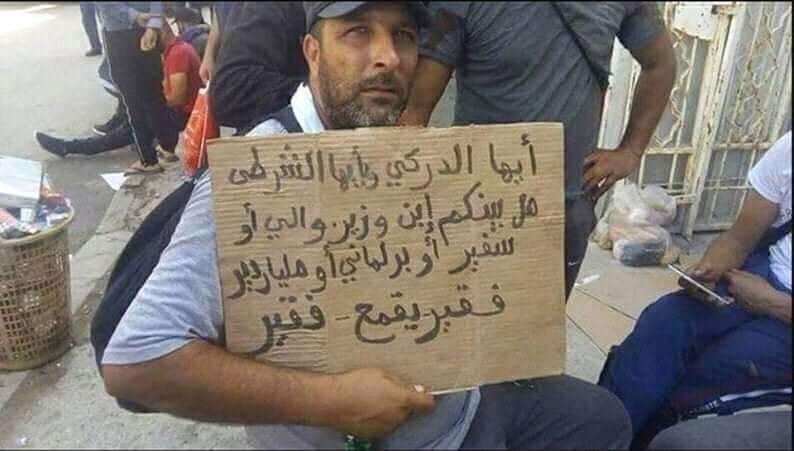 أيها الدركي وأيها الشرطي
هل بينكم إبن وزير والي أو
سفير أو برلماني أو ملياردير
فقير يقمع - فقير